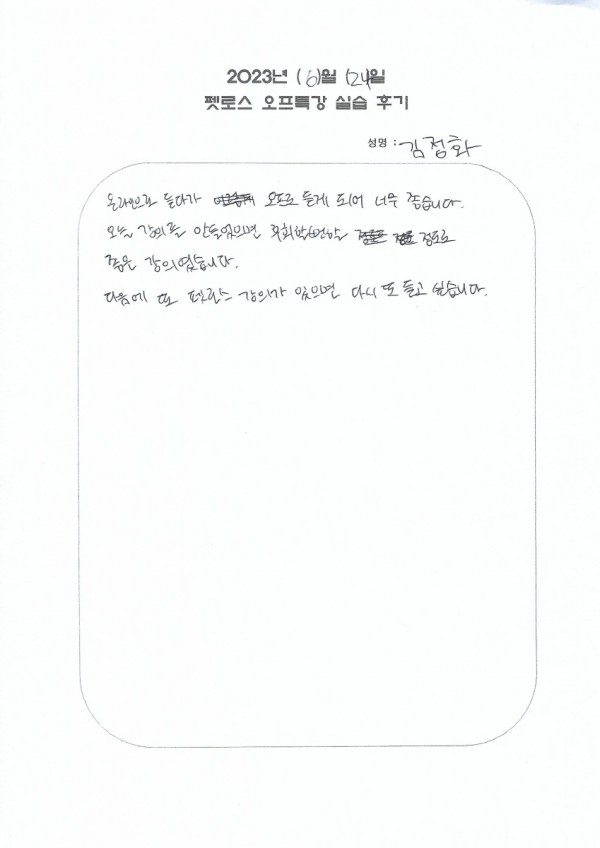 2023년 (6)월 (24)일
펫로스 오프특강 실습 후기
성명 : 김정화
온라인으로 듣다가 오프로 듣게 되어 너무 좋습니다.
오늘 강의를 안들었으면 후회할뻔한 정도로
좋은 강의였습니다.
다음에 또 펫로스 강의가 있으면 다시 또 듣고 싶습니다.